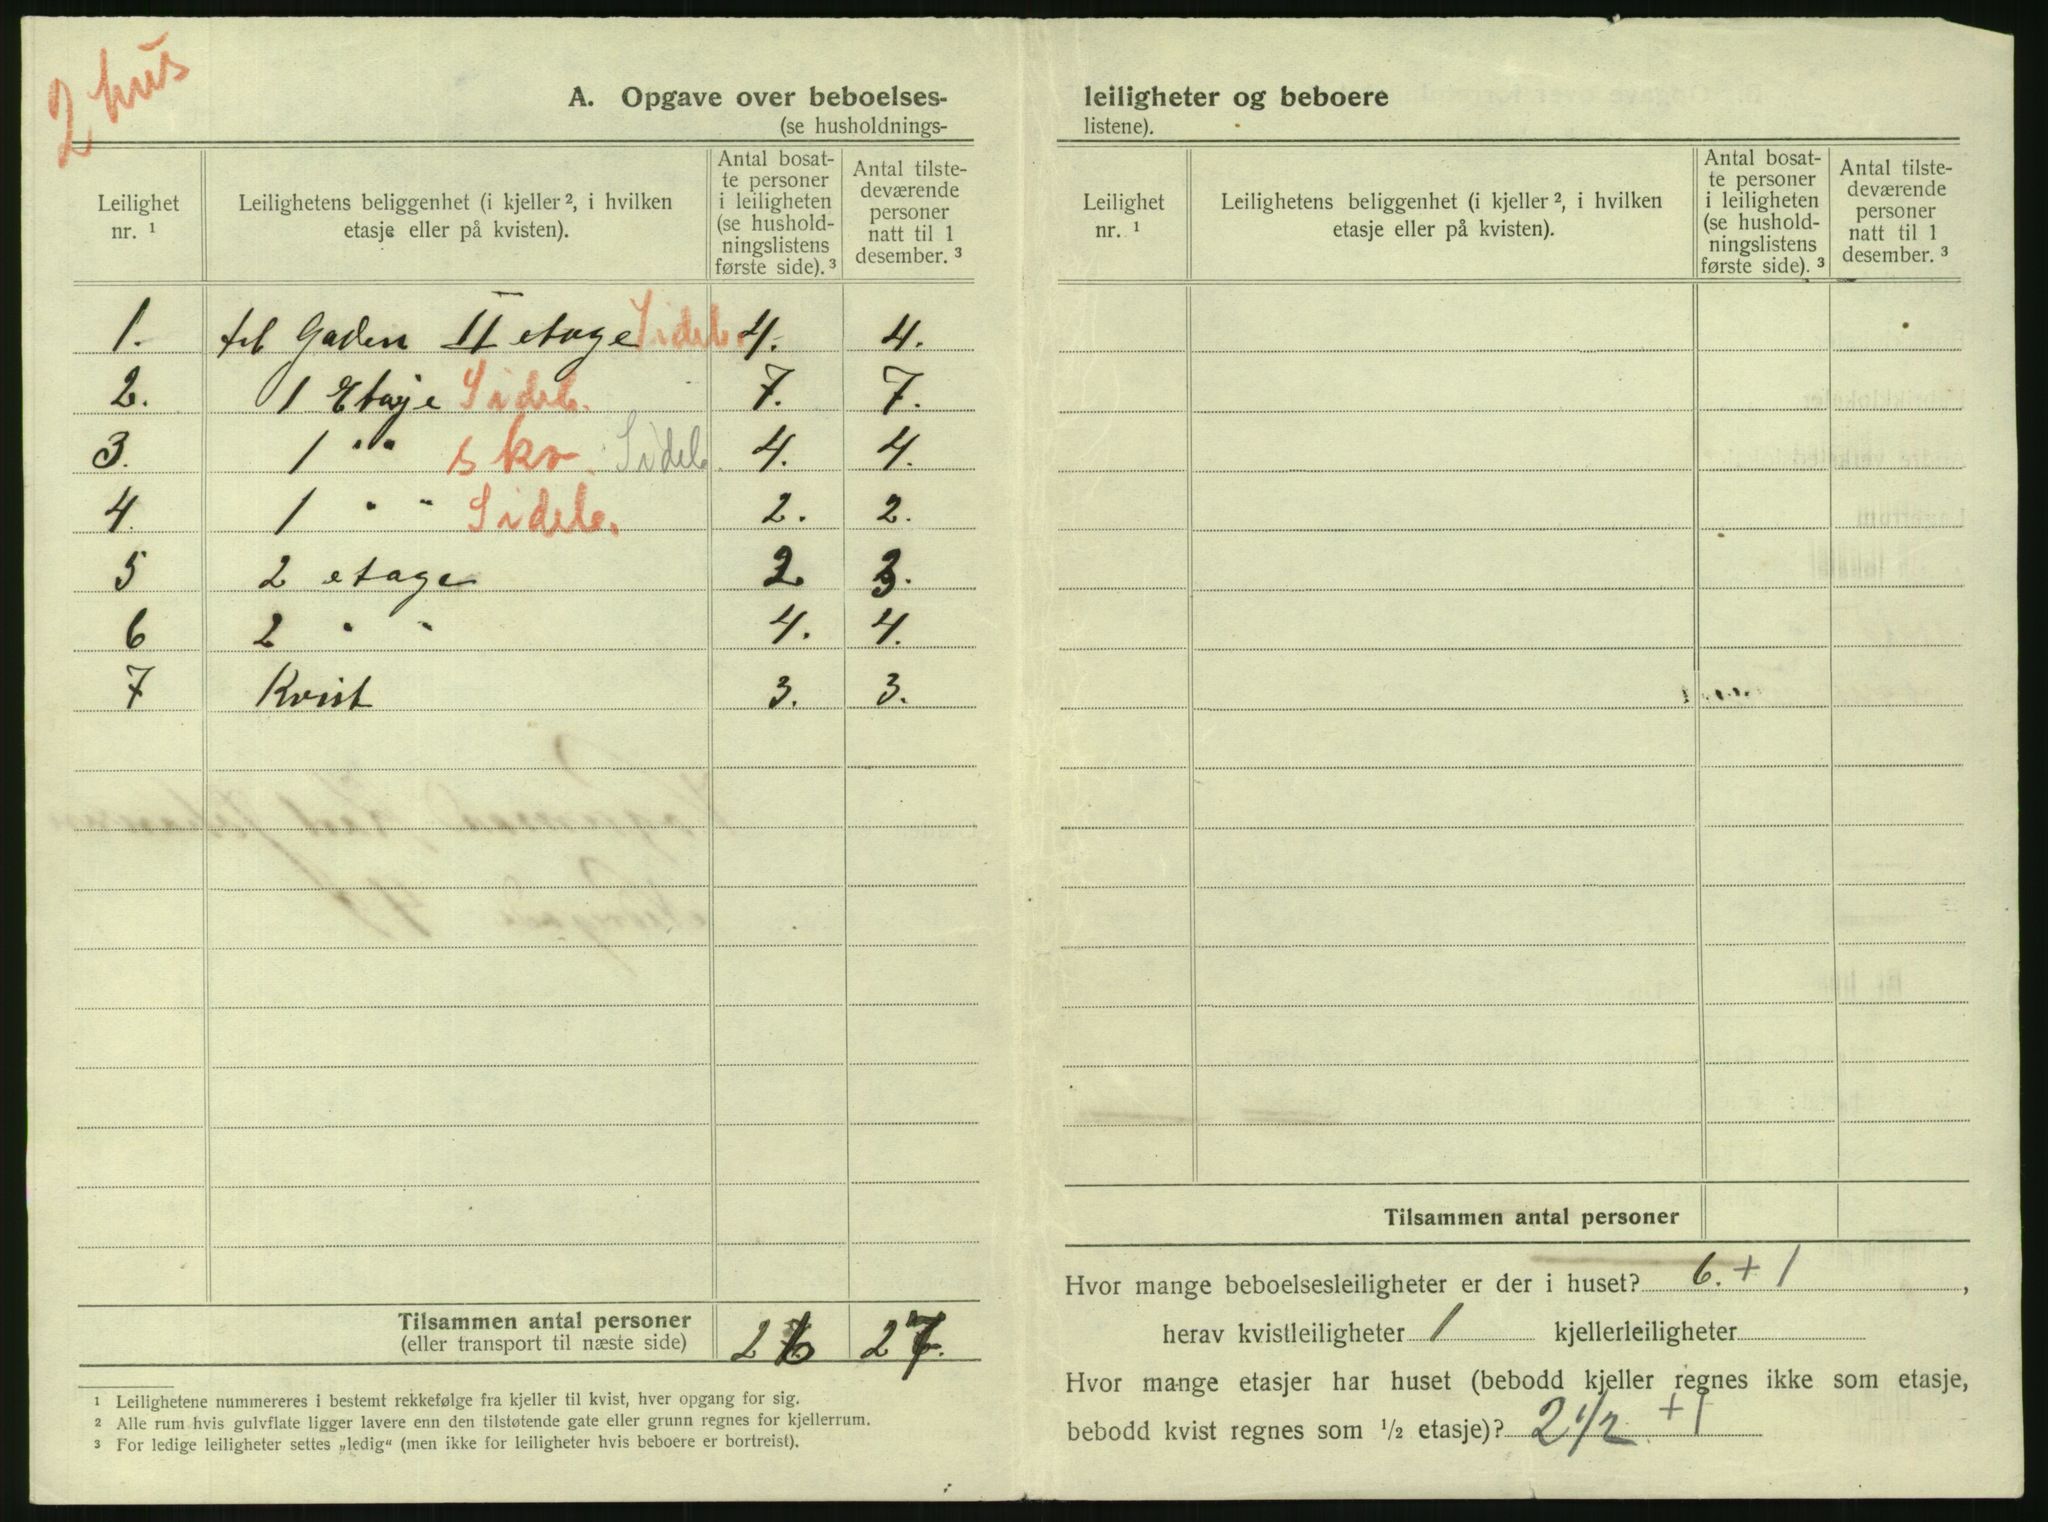 2 hus
A. Opgave over beboelses-
(se husholdnings-
Leilighet nr. ¹
Leilighetens beliggenhet (i kjeller ², i hvilken etasje eller på kvisten).
Antal bosatte personer i leiligheten (se husholdningslistens første side). ³
Antal tilstedeværende personer natt til 1 desember. ³
1. til Gaden II etage Sideb. 4. 4.
2. 1 Etasje Sideb. 7. 7.
3. 1 " " s kv. Sideb. 4. 4.
4. 1 " " Sideb. 2. 2.
5 2 etage 2 3.
6 2 " " 4. 4.
7 Kvist 3. 3.
Tilsammen antal personer 26 27.
(eller transport til næste side)
¹ Leilighetene nummereres i bestemt rekkefølge fra kjeller til kvist, hver opgang for sig.
² Alle rum hvis gulvflate ligger lavere enn den tilstøtende gate eller grunn regnes for kjellerrum.
³ For ledige leiligheter settes „ledig“ (men ikke for leiligheter hvis beboere er bortreist).
leiligheter og beboere
listene).
Leilighet nr. ¹
Leilighetens beliggenhet (i kjeller ², i hvilken etasje eller på kvisten).
Antal bosatte personer i leiligheten (se husholdningslistens første side). ³
Antal tilstedeværende personer natt til 1 desember. ³
Tilsammen antal personer
Hvor mange beboelsesleiligheter er der i huset? 6. + 1,
herav kvistleiligheter 1 kjellerleiligheter
Hvor mange etasjer har huset (bebodd kjeller regnes ikke som etasje,
bebodd kvist regnes som ½ etasje)? 2 1/2 + 1